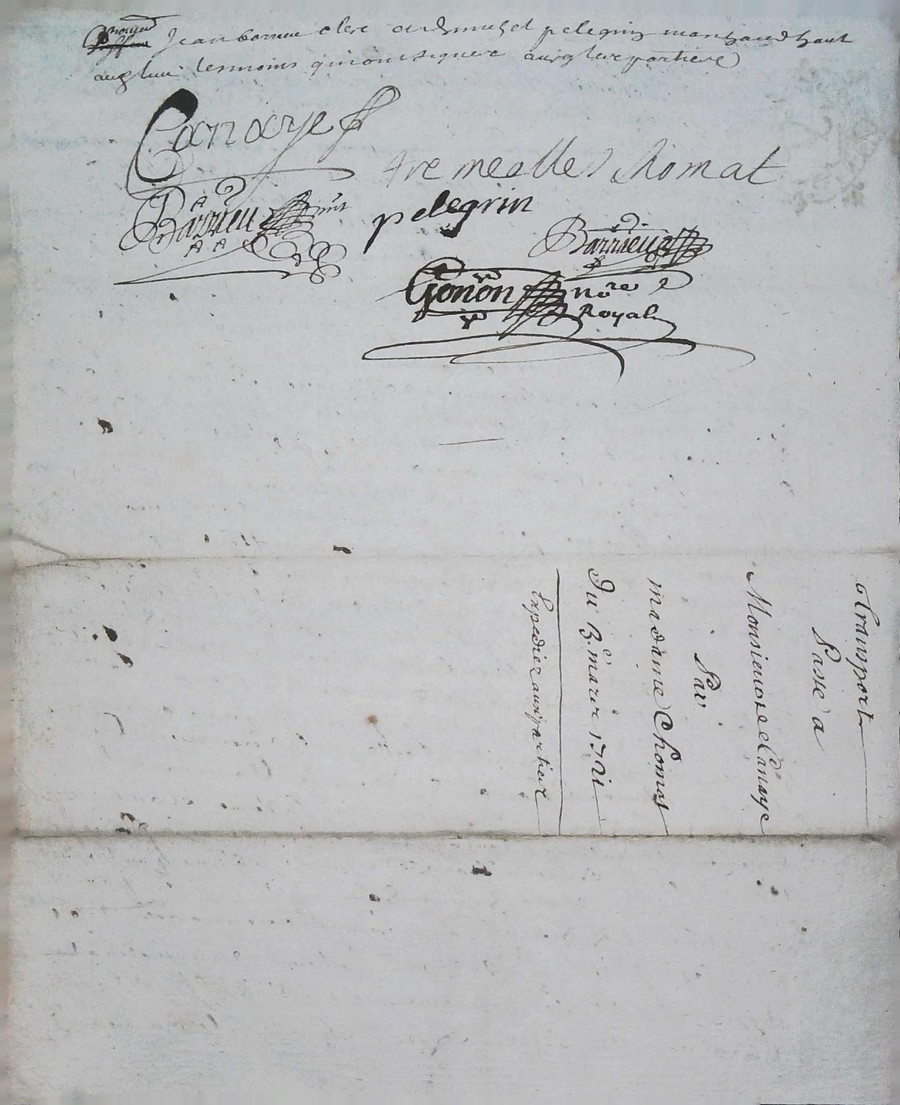 Jean barrieu clerc et pelegrin marchand
tesmoins qui ont signé avec les parties
Canaye
tremeolles Chomat
Barrieu
pelegrin
Barrieu
Gonon nore
Royal
transport
Passé a
Monsieur de Canaye
Par
madame Chomat
Du mars 1721
Expedié aux parties